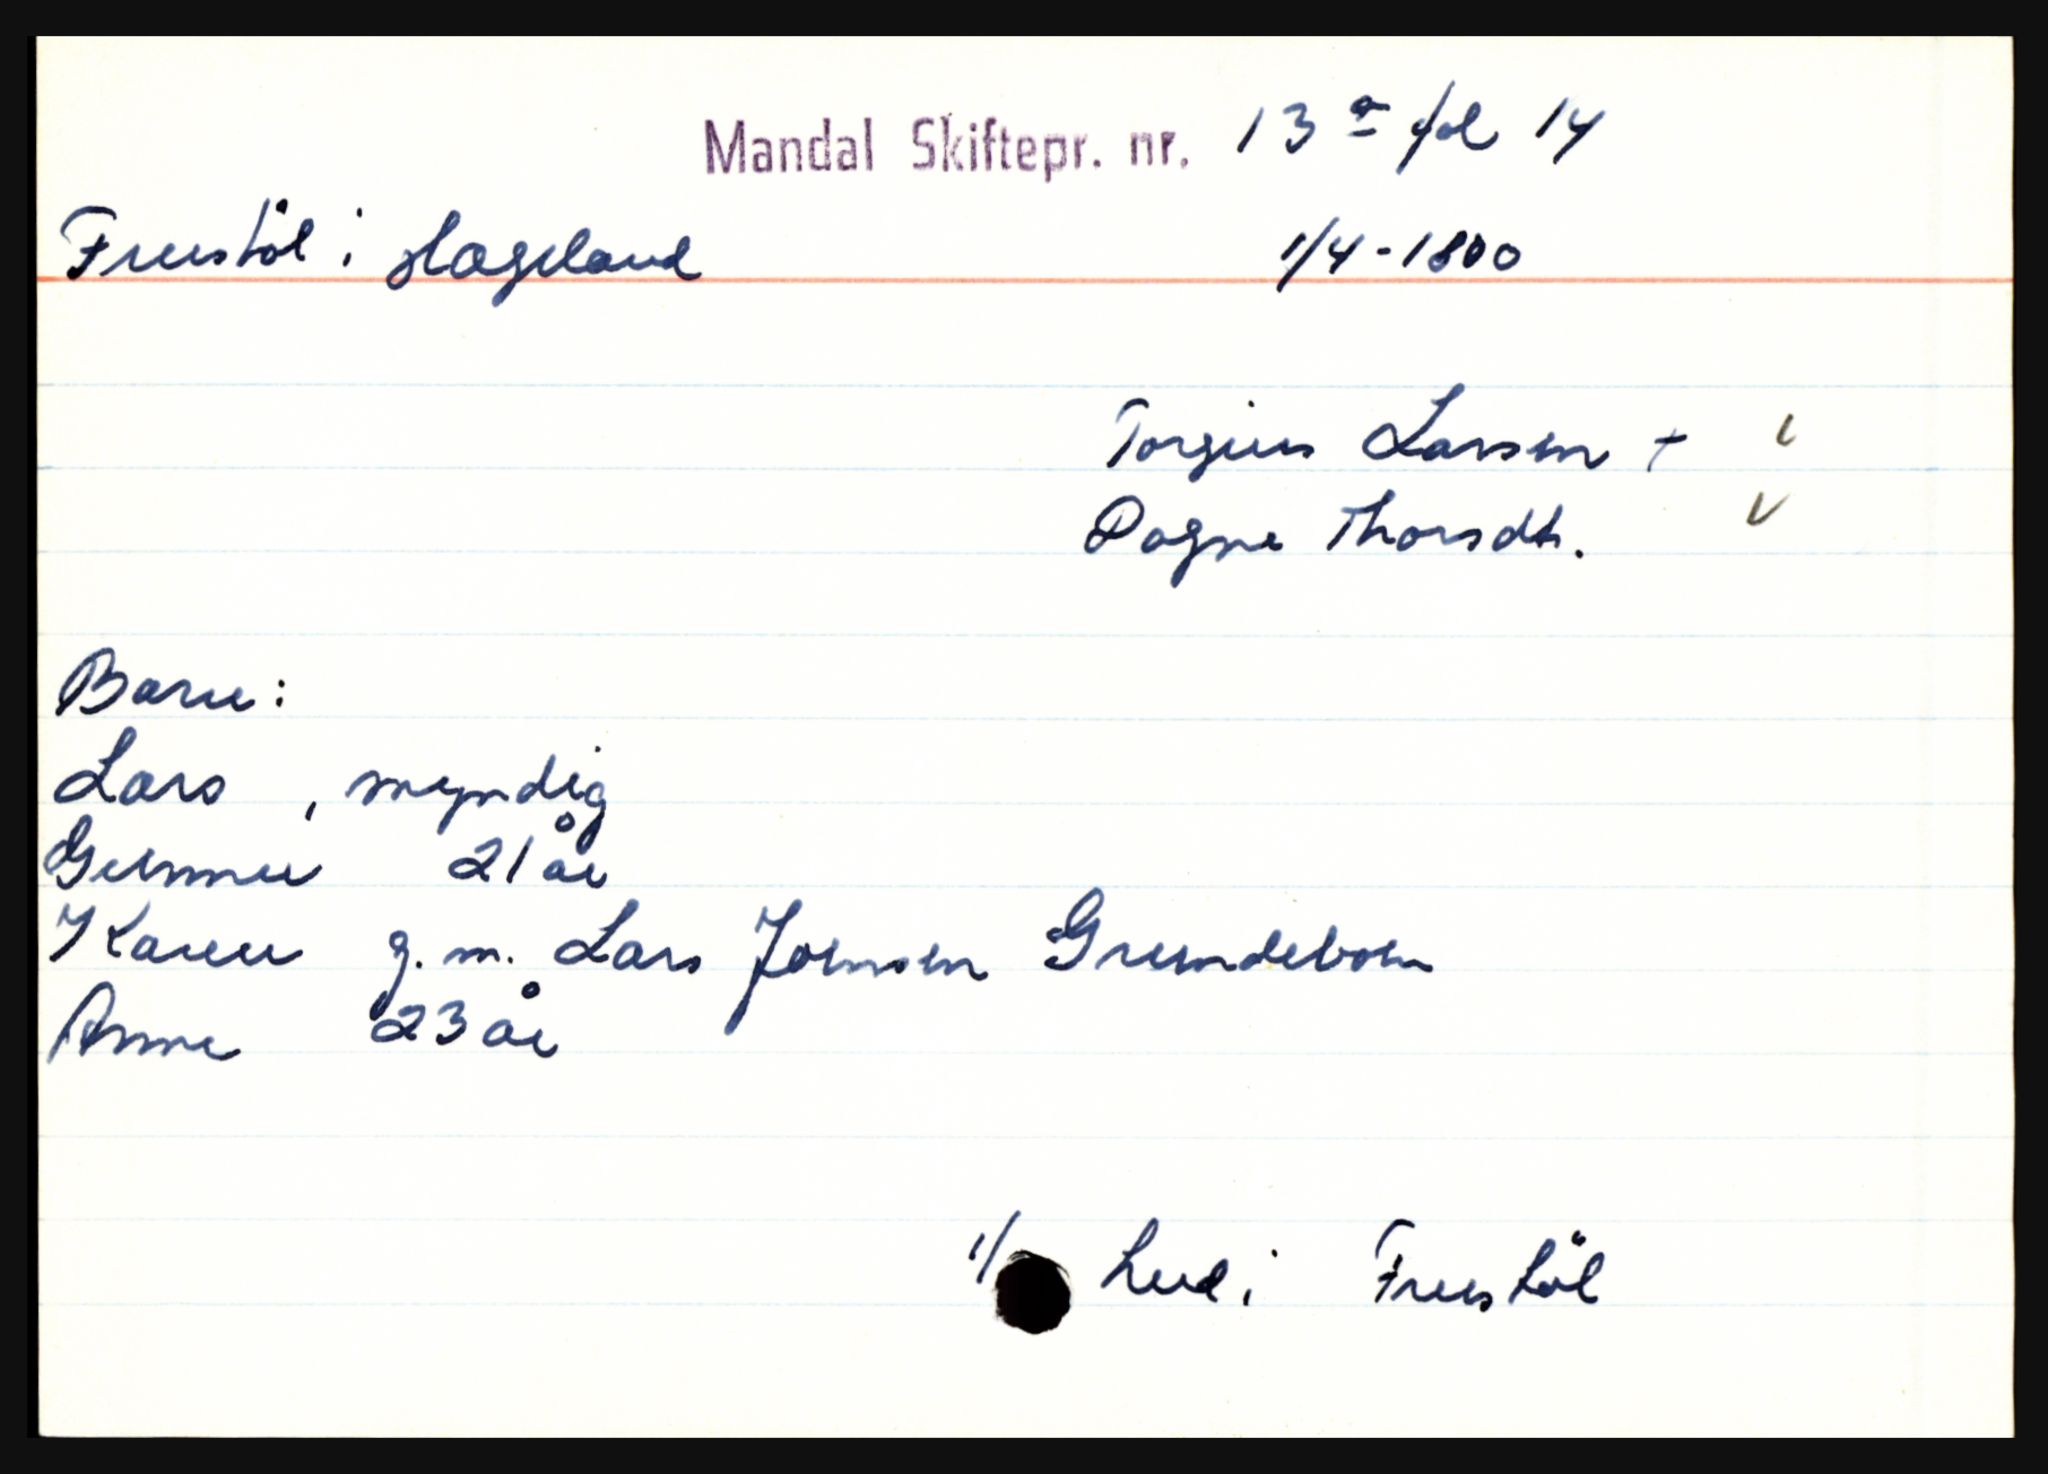 Mandal Skiftepr. nr. 13 a fol 14
Freustöl i Hægeland 1/4-1800
Torgius Larsen +
Dagne Thorsdt.
Barn:
Lars , myndig
Gunner 21 år
Karen g. m. Lars Joensen
Anne 23 år
1/ hud i Freustöl